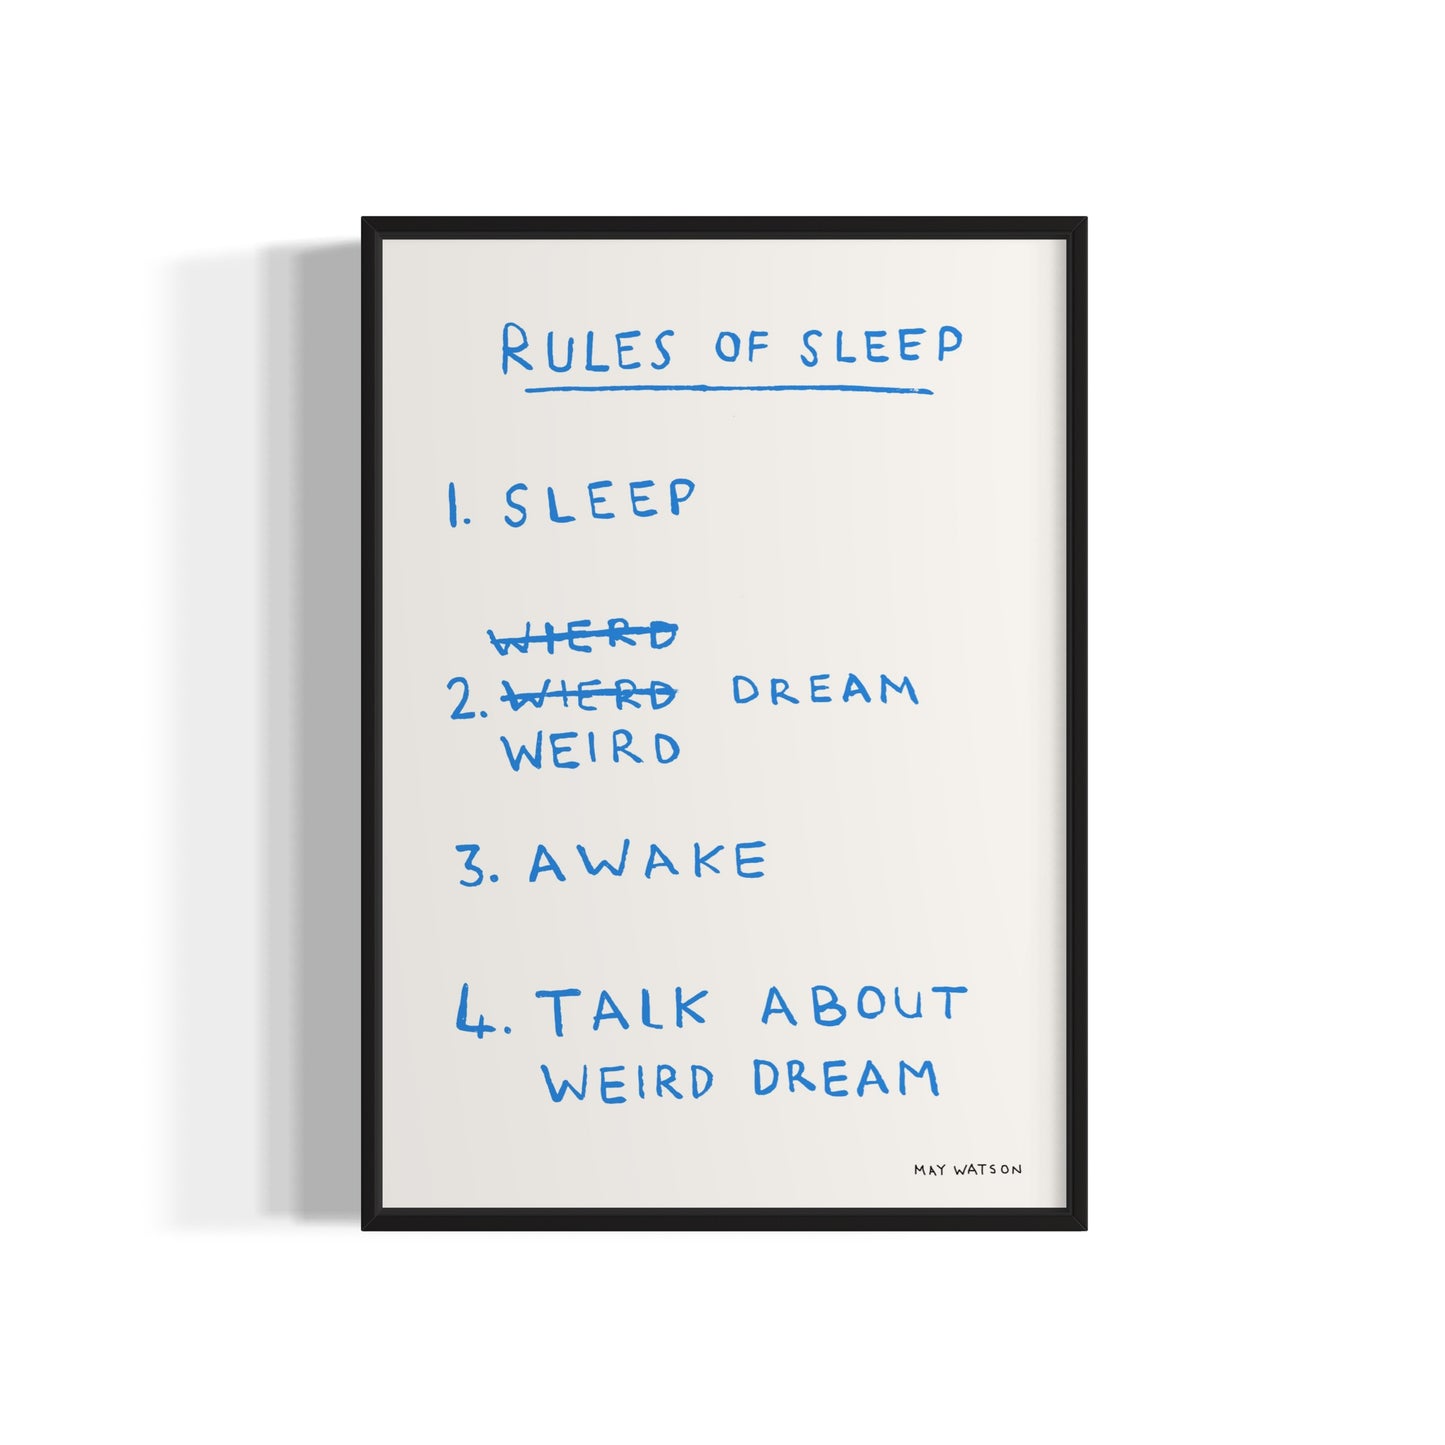 RULES OF SLEEP
1. SLEEP
WIERD
2. WIERD DREAM
WEIRD
3. AWAKE
4. TALK ABOUT
WEIRD DREAM
MAY WATSON